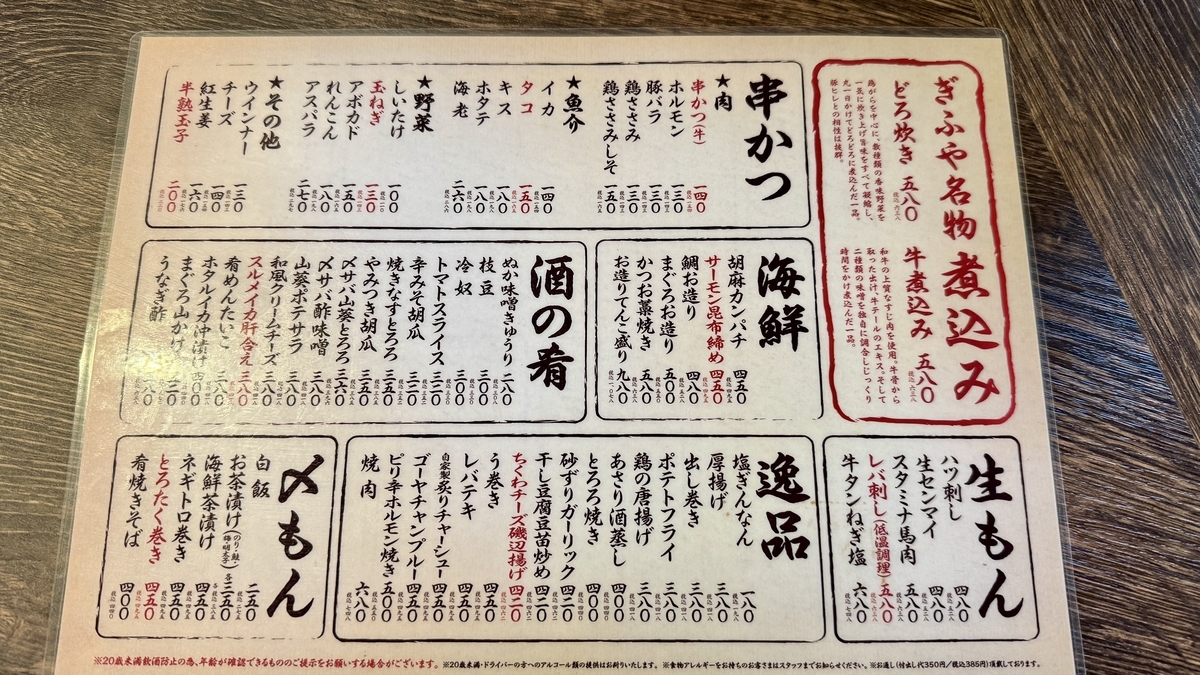 ぎふや名物 煮込み
どろ炊き 五八〇
鶏がらを中心に、数種類の香味野菜を
一気に炊き上げ旨味をすべて凝縮し、
丸一日かけてどろどろに煮込んだ一品。
豚ヒレとの相性は抜群。
牛煮込み 五八〇
和牛の上質なすじ肉を使用。牛骨から
取った出汁、牛テールのエキス。そして
二種類の味噌を独自に調合しじっくり
時間をかけ煮込んだ一品。
串かつ
★肉
串かつ(牛) 一四〇
ホルモン 一三〇
豚バラ 一三〇
鶏ささみ 一三〇
鶏ささみしそ 一五〇
★魚介
イカ 一四〇
タコ 一五〇
キス 一八〇
ホタテ 一八〇
海老 二六〇
★野菜
しいたけ 一〇〇
玉ねぎ 一三〇
アボカド 一五〇
れんこん 一八〇
アスパラ 二七〇
★その他
ウインナー 一三〇
チーズ 一四〇
紅生姜 一六〇
半熟玉子 二〇〇
海鮮
胡麻カンパチ 四五〇
サーモン昆布締め 四五〇
鯛お造り 四八〇
まぐろお造り 五八〇
かつお藁焼き 五八〇
お造りてんこ盛り 九八〇
酒の肴
ぬか味噌きゅうり 二八〇
枝豆 三〇〇
冷奴 三〇〇
トマトスライス 三二〇
辛みそ胡瓜 三二〇
焼きなすとろろ 三五〇
やみつき胡瓜 三五〇
〆サバ山葵とろろ 三六〇
〆サバ酢味噌 三八〇
山葵ポテサラ 三八〇
和風クリームチーズ 三八〇
スルメイカ肝合え 三八〇
肴めんたいこ 三八〇
ホタルイカ沖漬け 四〇〇
まぐろ山かけ
うなぎ酢
生もん
ハツ刺し 四八〇
生センマイ 四八〇
スタミナ馬肉 五八〇
レバ刺し(低温調理) 五八〇
牛タンねぎ塩 六八〇
逸品
塩ぎんなん 一八〇
厚揚げ 三八〇
出し巻き 三八〇
ポテトフライ 三八〇
鶏の唐揚げ 三八〇
あさり酒蒸し 四〇〇
とろろ焼き 四〇〇
砂ずりガーリック 四二〇
干し豆腐豆苗炒め 四二〇
ちくわチーズ磯辺揚げ 四二〇
う巻き 四五〇
レバテキ 四五〇
自家製炙りチャーシュー 四五〇
ゴーヤチャンプルー 四五〇
ピリ辛ホルモン焼き 五〇〇
焼肉 六八〇
〆もん
白飯 二五〇
お茶漬け(のり・鮭・梅・明太子) 各三五〇
海鮮茶漬け 四五〇
ネギトロ巻き 四五〇
とろたく巻き 四五〇
肴焼きそば 四〇〇
※20歳未満飲酒防止の為、年齢が確認できるもののご提示をお願いする場合がございます。 ※20歳未満・ドライバーの方へのアルコール類の提供はお断りいたします。 ※食物アレルギーをお持ちのお客さまはスタッフまでお知らせください。 ※お通し(付出し代350円/税込385円)頂戴しております。